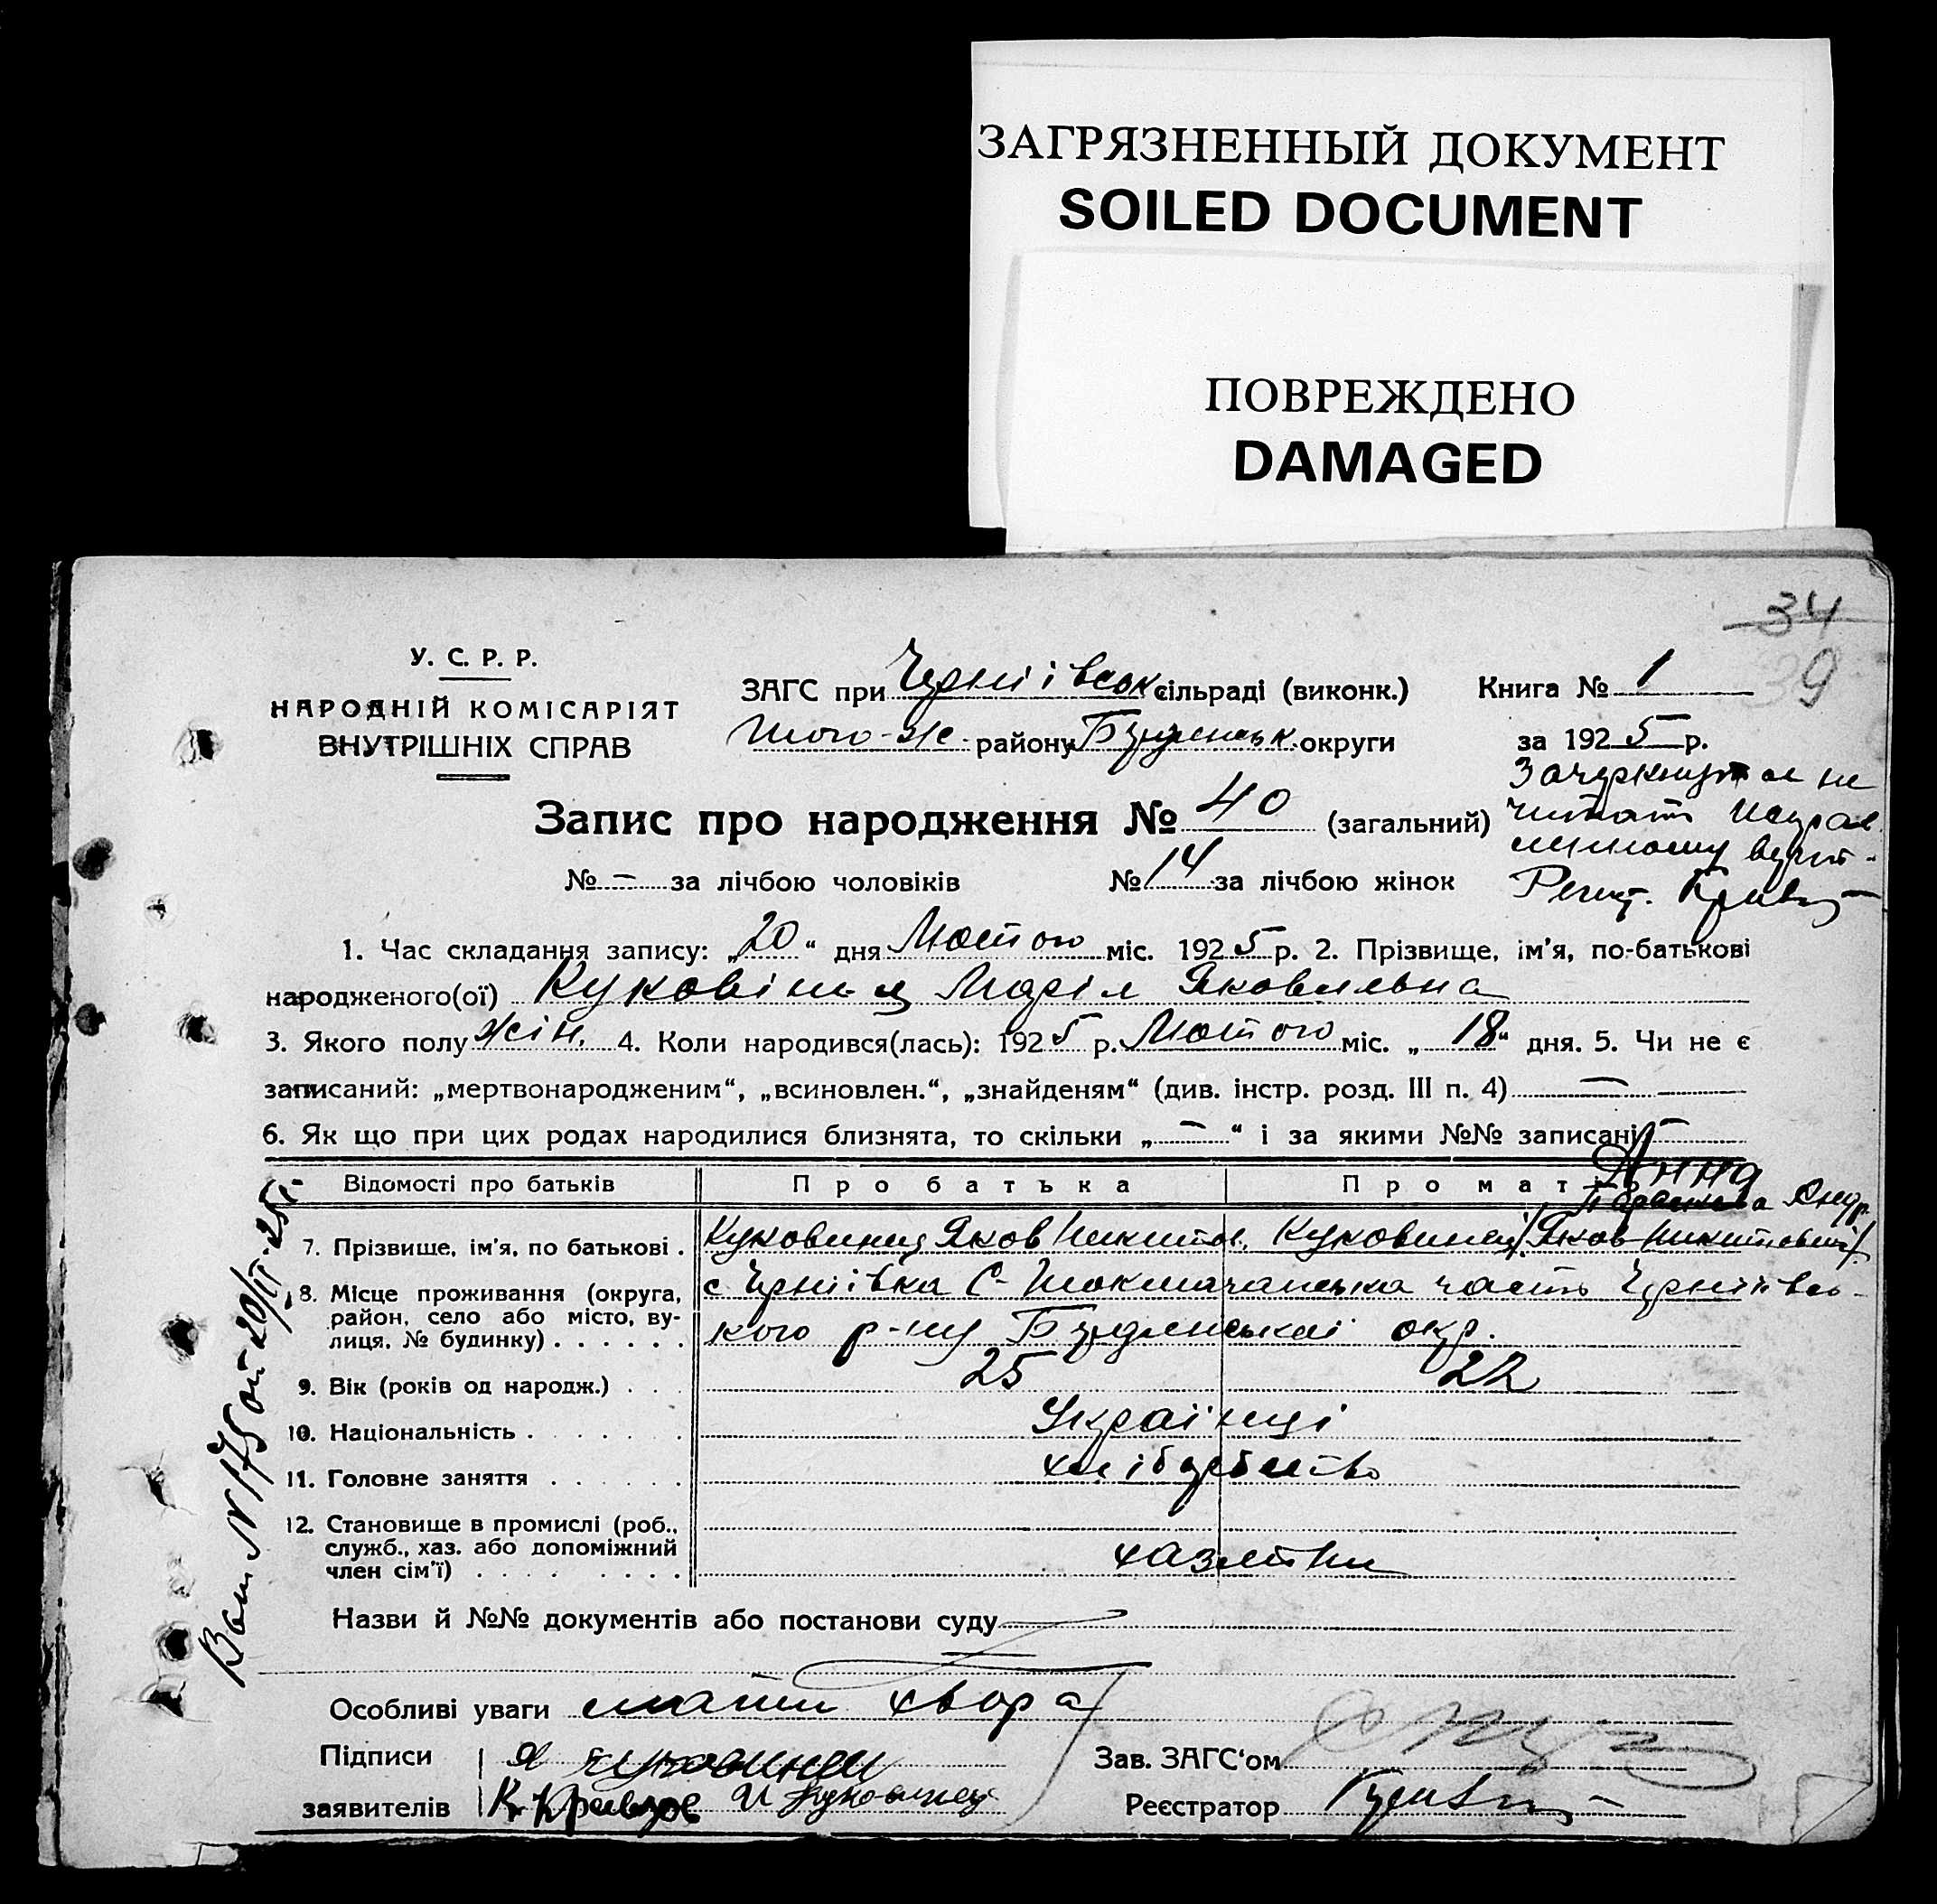 ЗАГРЯЗНЕННЫЙ ДОКУМЕНТ
SOILED DOCUMENT
ПОВРЕЖДЕНО
DAMAGED
34
39
У. С. Р. Р.
НАРОДНІЙ КОМІСАРІЯТ
ВНУТРІШНІХ СПРАВ
ЗАГС при Чернiiвськ сільраді (виконк.)
Книга № 1
Того-же району округи
за 1925 р.
Зачеркнутое не
читать
Запис про народження № 40 (загальний)
№ – за лічбою чоловіків № 14 за лічбою жінок
1. Час складання запису: „20“ дня Лютого міс. 1925 р. 2. Прізвище, ім'я, по-батькові
народженого(ої) Куковінец Марія Яковлевна
3. Якого полу жін. 4. Коли народився(лась): 1925 р. Лютого міс. „18“ дня. 5. Чи не є
записаний: „мертвонародженим“, „всиновлен.“, „знайденям“ (див. інстр. розд. III п. 4) —
6. Як що при цих родах народилися близнята, то скільки „–“ і за якими №№ записані –
Анна
Андр.
Відомості про батьків Про батька Про матір
7. Прізвище, ім'я, по батькові . Куковинец Яков Никитов. Куковинец Яков Никитович
8. Місце проживання (округа, с Чернiiвка С-Токмачанська часть
район, село або місто, ву-
лиця, № будинку) . . . . . . кого р-ну окр.
9. Вік (років од народж.) . . . 25 22
10. Національність . . . . . . . Українці
11. Головне заняття . . . . . . хліборобство
12. Становище в промислі (роб.,
служб., хаз. або допоміжний
член сім'ї) . . . . . . . . . хазяини
Назви й №№ документів або постанови суду —
Особливі уваги мати хвора
Підписи Я Куковинец
Зав. ЗАГС'ом
заявителів К. Кравцов И Куковинец
Реєстратор
№ 175 от 20/II-25 г.